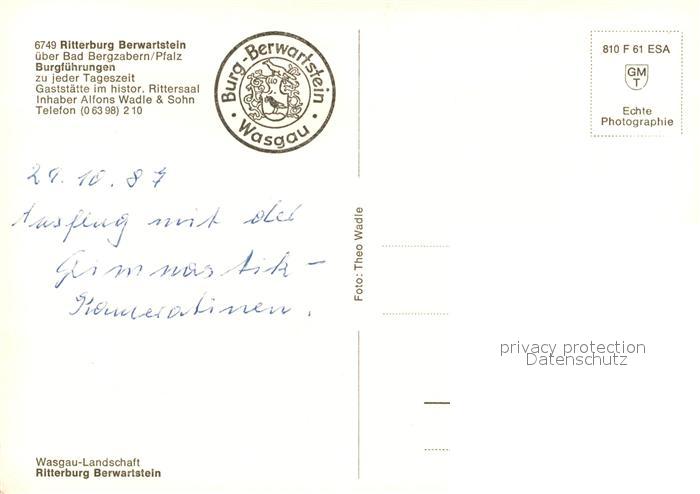 6749 Ritterburg Berwartstein
über Bad Bergzabern/Pfalz
Burgführungen
zu jeder Tageszeit
Gaststätte im histor. Rittersaal
Inhaber Alfons Wadle & Sohn
Telefon (0 63 98) 2 10
Burg-Berwartstein
· Wasgau ·
810 F 61 ESA
GM
T
Echte
Photographie
29.10.87
Ausflug mit der
Gimnastik-
Kameratinen.
Foto: Theo Wadle
privacy protection
Datenschutz
Wasgau-Landschaft
Ritterburg Berwartstein